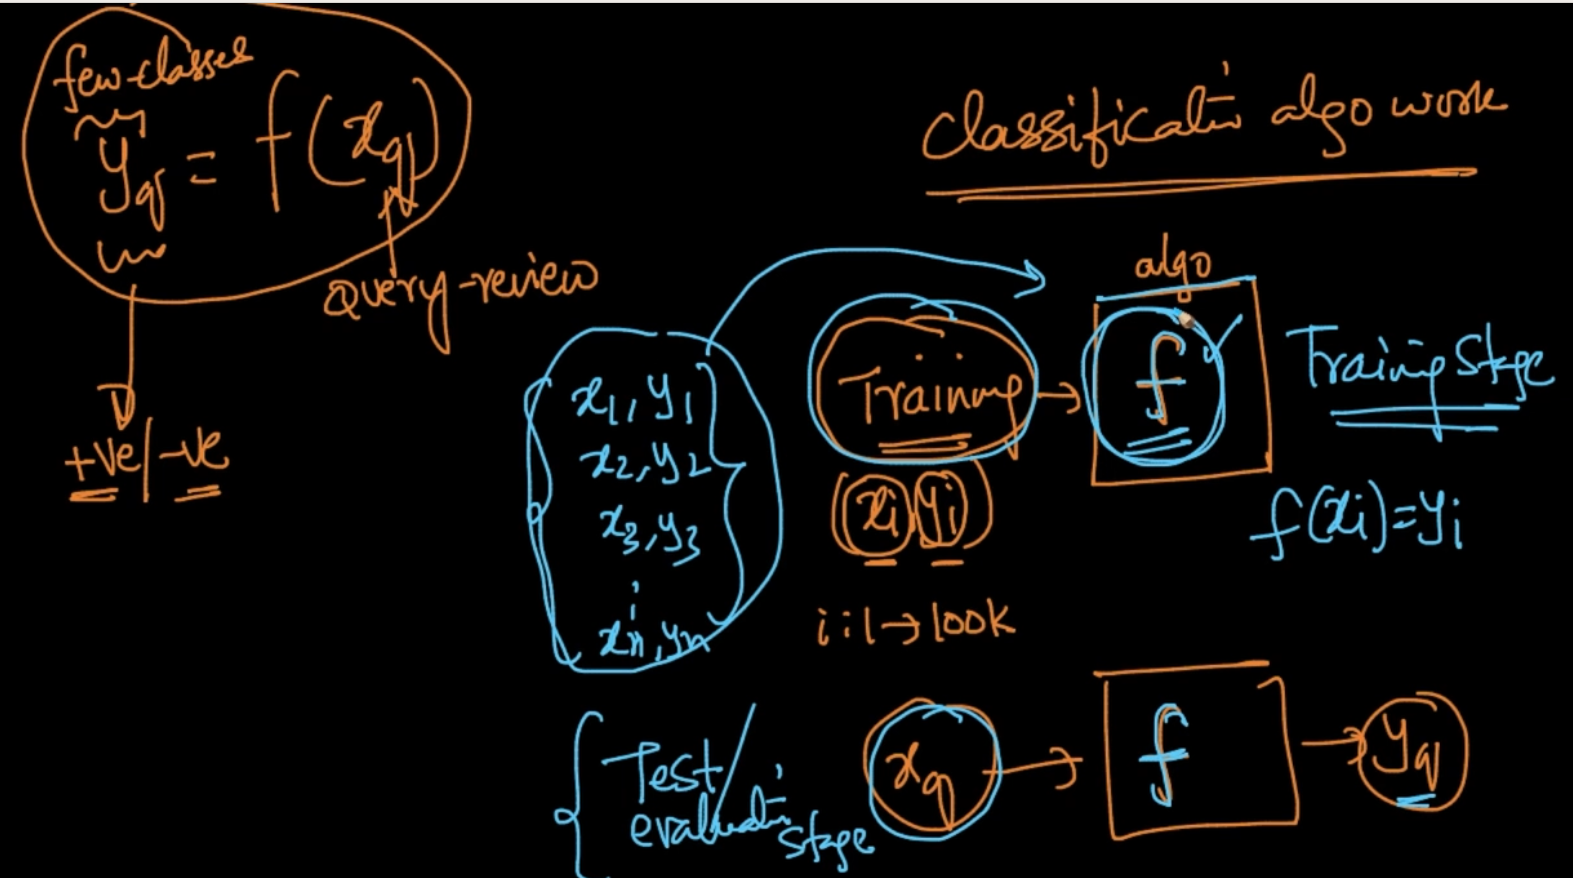 few-classes
yq = f(xq)
Query-review
+ve/-ve
Classificatin algo work
algo
x1, y1
x2, y2
x3, y3
xn, yn
Training
f
Traing Stage
(xi, yi)
f(xi)=yi
i:1→100K
Test/
evaluatin stage
xq
f
yq